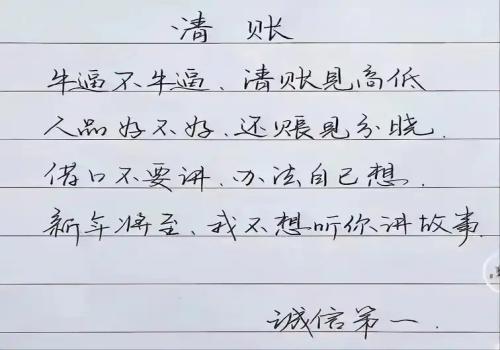 清账
牛逼不牛逼、清账见高低
人品好不好、还账见分晓.
借口不要讲、办法自己想.
新年将至、我不想听你讲故事.
诚信第一.